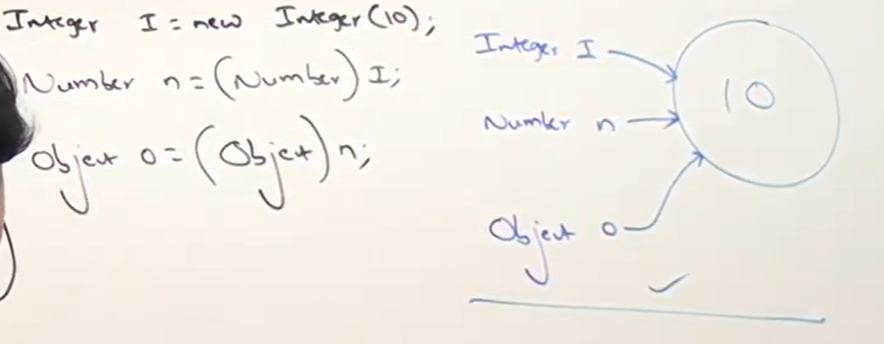 Integer I = new Integer(10);
Number n = (Number) I;
Object o = (Object) n;
Integer I
Number n
Object o
10